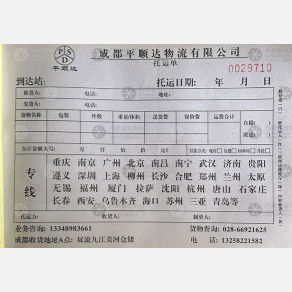 PSD
平顺达
成都平顺达物流有限公司
托运单
0029710
到达站: 托运日期: 年 月 日
收货人: 电话: 地址:
发货人: 电话:
货物名称 包装 件数 重量/体积 送货费 保价费 运费合计
自提( )
送货( )
合计金额大写:
专线
重庆 南京 广州 北京 南昌 南宁 武汉 济南 贵阳
遵义 深圳 上海 柳州 长沙 合肥 郑州 兰州 太原
无锡 福州 厦门 拉萨 沈阳 杭州 唐山 石家庄
长春 西安 乌鲁木齐 海口 苏州 三亚 青岛等
托运方: 收货人: 制单人:
业务咨询: 13348983661 货物查询: 028-66921625
成都收货地址A点: 双流九江美河仓储 电 话: 13258221582